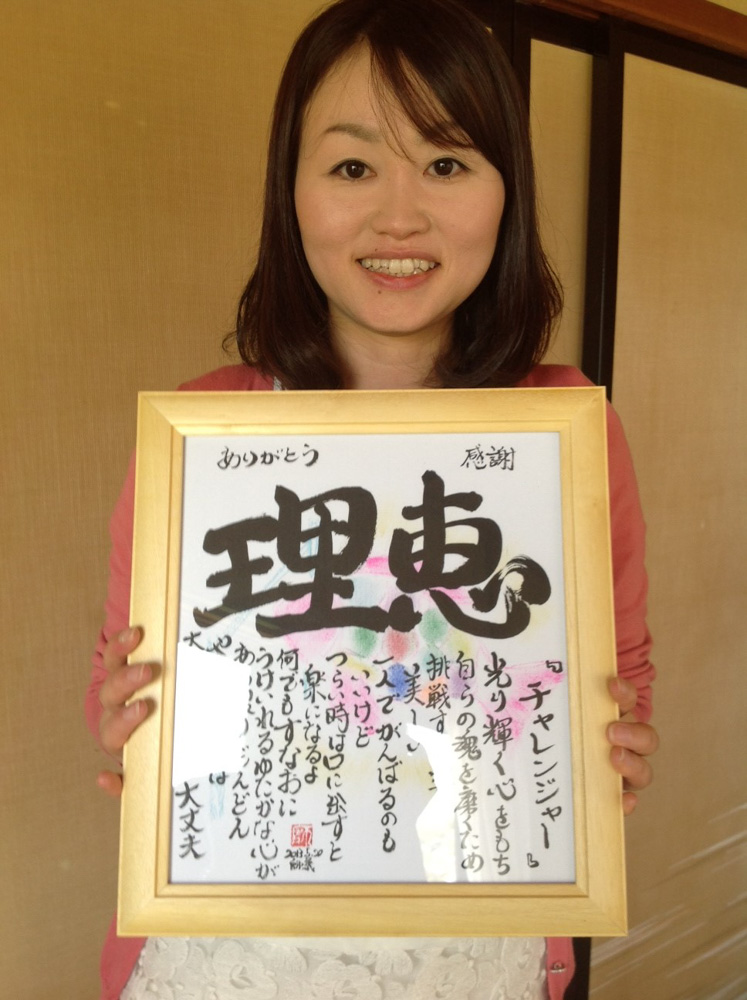 ありがとう
感謝
理恵
『チャレンジャー』
光り輝く心をもち
自らの魂を磨くため
挑戦す
美しい
一人でがんばるのも
いいけど
つらい時は口に出すと
楽になるよ
何でもすなおに
うけいれるゆたかな心が
どんどん
は
大丈夫